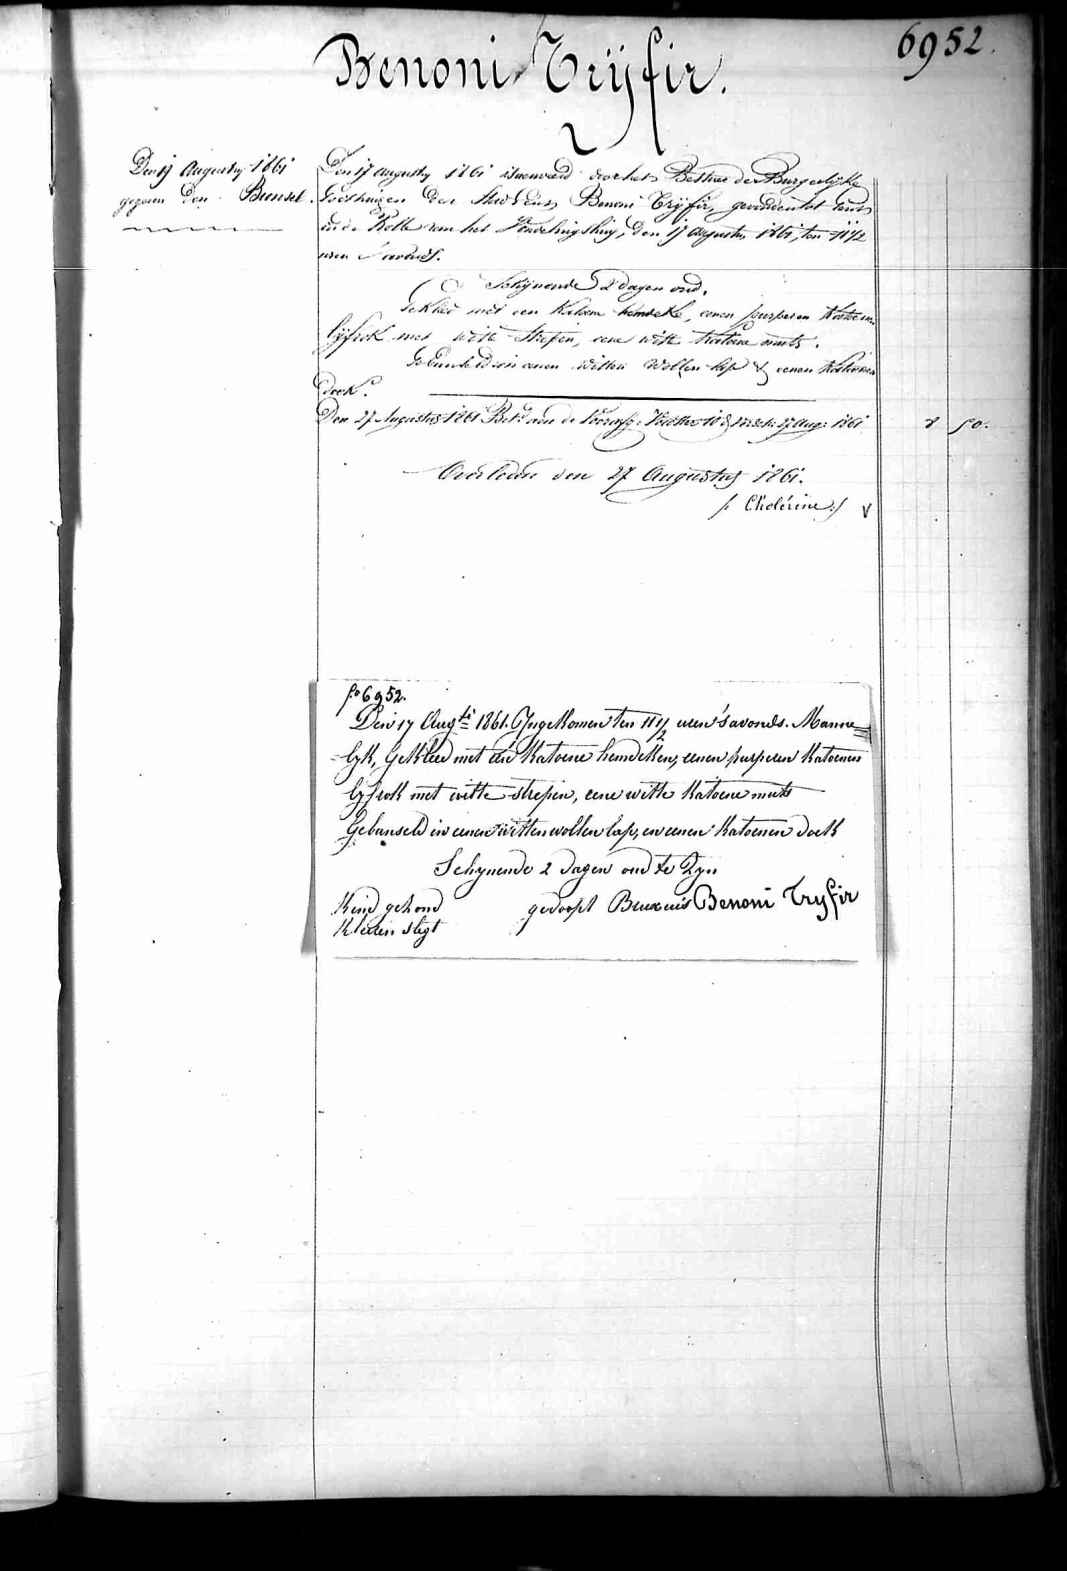 6952.
Benoni Trÿfir.
Den 17 Augusty 1861
gegeven den Bunsel.
Den 17 Augusty 1861 door het Bestuur der Burgerlyke
Godshuizen der Stad Benoni Trÿfir, gevonden tot
in de Rolle van het Vondelingshuis, den 17 Augustus 1861, ten 11 1/2
uren s'avonds.
Schijnende 2 dagen oud.
Gekleed met een Katoen hemdeke, eenen purperen Katoenen
lijfrok met witte strepen, eene witte katoene muts.
Gebunseld in eenen witten wollen lap & eenen Katoenen
doek.
Den 27 Augustus 1861 Bet. aan de 27 Aug: 1861
8 50.
Overleden den 27 Augustus 1861.
/: Cholérine :/
fo 6952.
Den 17 Augti 1861. Ingekomen ten 11 1/2 uren s'avonds. Manne=
=lyk, Gekleed met een Katoene hemdeken, eenen purperen Katoenen
lyfrok met witte strepen, eene witte Katoene muts
Gebunseld in eenen witten wollen lap, en eenen Katoenen doek
Schynende 2 dagen oud te Zyn
Kind gezond gedoopt Benoni Tryfir
Kleeren slegt